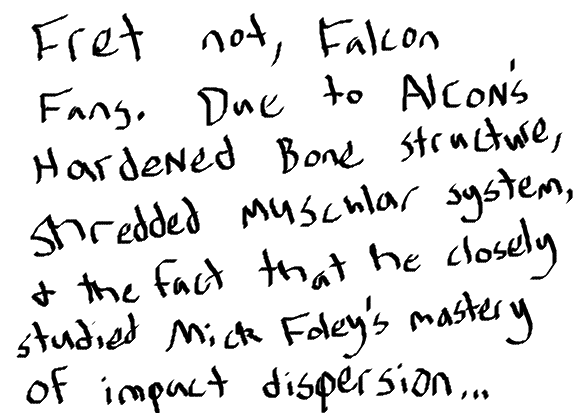 Fret not, Falcon
Fans. Due to Alcon's
Hardened Bone structure,
shredded muscular system,
& the fact that he closely
studied Mick Foley's mastery
of impact dispersion...